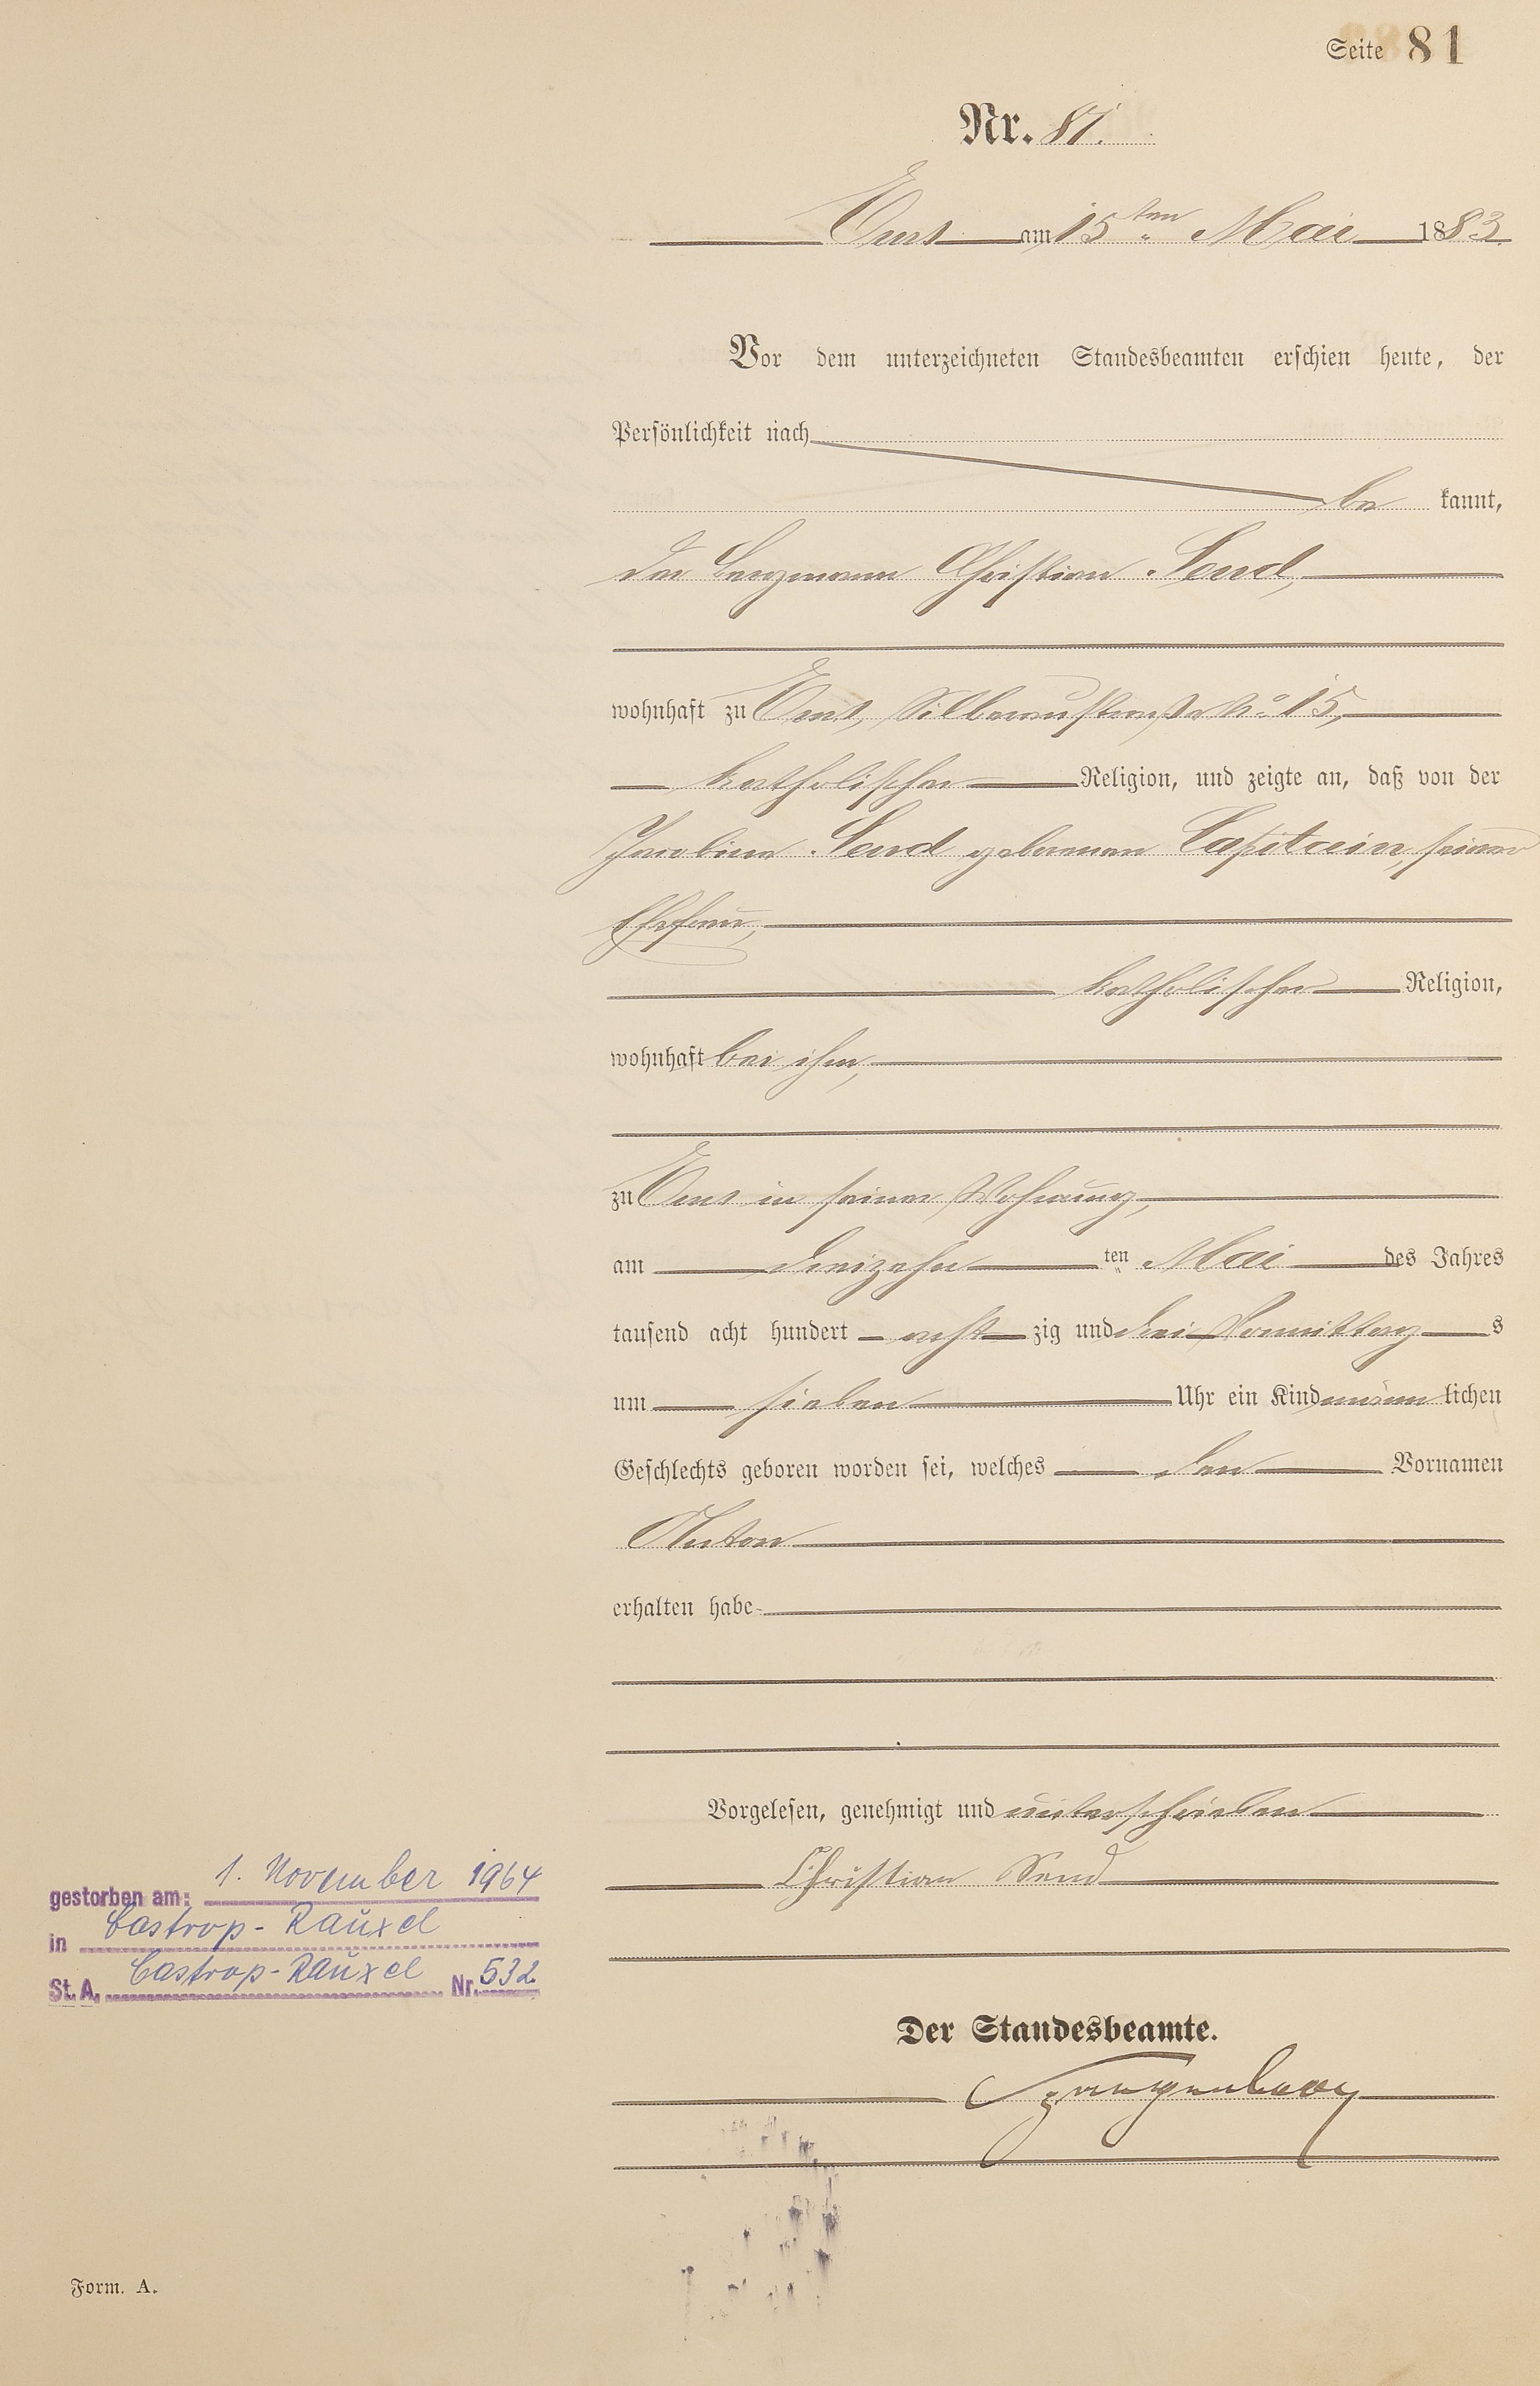 Seite 81
Nr. 81.
Ems am 15ten Mai 1883.
Vor dem unterzeichneten Standesbeamten erschien heute, der
Persönlichkeit nach
be kannt,
der Bergmann Christian Send,
wohnhaft zu Ems, Silberaustraße No 15,
katholischer Religion, und zeigte an, daß von der
Jacobina Send geborenen Capitain, seiner
Ehefrau,
katholischer Religion,
wohnhaft bei ihm,
zu Ems in seiner Wohnung,
am dreizehn ten Mai des Jahres
tausend acht hundert acht zig und drei Vormittag s
um sieben Uhr ein Kind männ lichen
Geschlechts geboren worden sei, welches den Vornamen
Anton
erhalten habe
Vorgelesen, genehmigt und unterschrieben
Christian Send
gestorben am: 1. November 1964
in Castrop-Rauxel
St. A. Castrop-Rauxel Nr. 532
Der Standesbeamte.
Form. A.